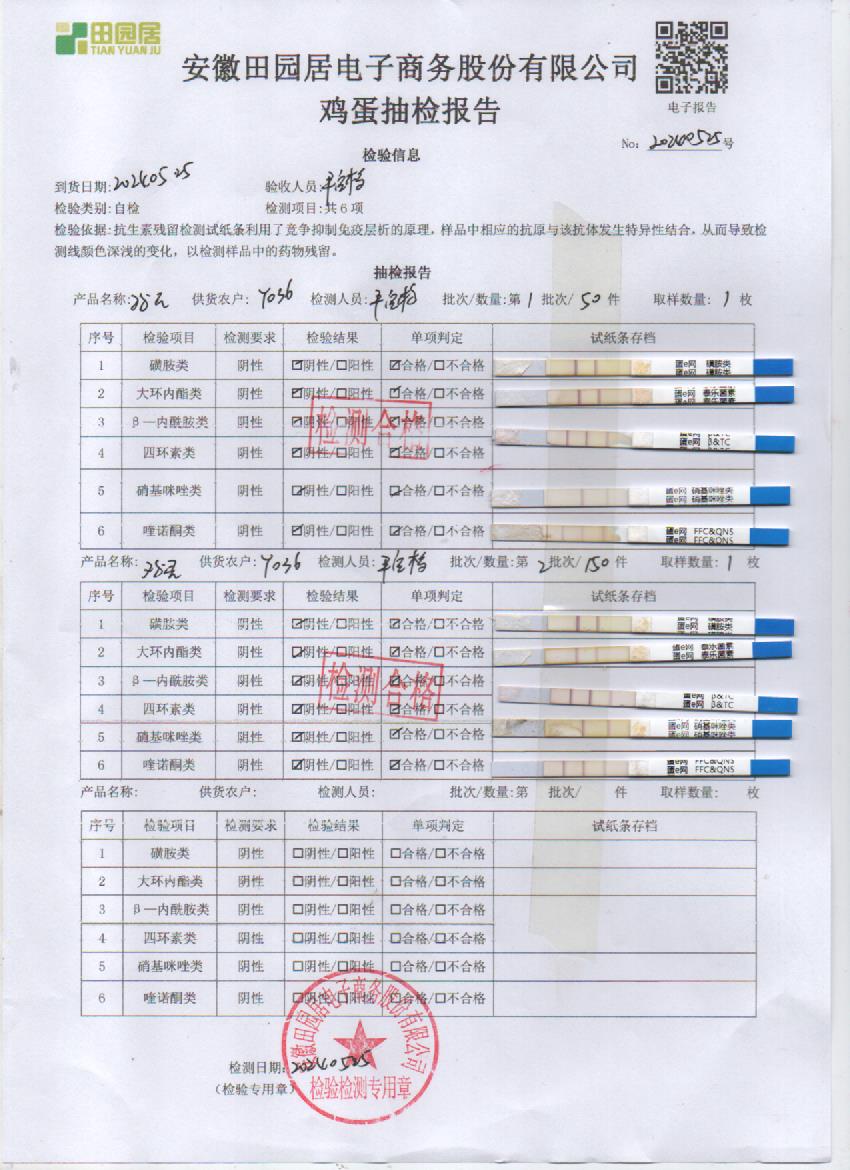 田园居
TIAN YUAN JU
安徽田园居电子商务股份有限公司
鸡蛋抽检报告
电子报告
No: 20240525号
检验信息
到货日期:20240525 验收人员:
检验类别:自检 检测项目:共6项
检验依据:抗生素残留检测试纸条利用了竞争抑制免疫层析的原理,样品中相应的抗原与该抗体发生特异性结合,从而导致检
测线颜色深浅的变化,以检测样品中的药物残留。
抽检报告
产品名称: 供货农户:Y036 检测人员: 批次/数量:第1批次/50件 取样数量:1枚
序号 检验项目 检测要求 检验结果 单项判定 试纸条存档
1 磺胺类 阴性 ☑阴性/☐阳性 ☑合格/☐不合格 蛋e网 磺胺类
2 大环内酯类 阴性 ☑阴性/☐阳性 ☑合格/☐不合格 蛋e网 泰乐菌素
3 β—内酰胺类 阴性 ☑阴性/☐阳性 ☑合格/☐不合格 蛋e网 β&TC
4 四环素类 阴性 ☑阴性/☐阳性 ☑合格/☐不合格
5 硝基咪唑类 阴性 ☑阴性/☐阳性 ☑合格/☐不合格 蛋e网 硝基咪唑类
6 喹诺酮类 阴性 ☑阴性/☐阳性 ☑合格/☐不合格 蛋e网 FFC&QNS
检测合格
产品名称: 供货农户:Y036 检测人员: 批次/数量:第2批次/150件 取样数量:1枚
序号 检验项目 检测要求 检验结果 单项判定 试纸条存档
1 磺胺类 阴性 ☑阴性/☐阳性 ☑合格/☐不合格 蛋e网 磺胺类
2 大环内酯类 阴性 ☑阴性/☐阳性 ☑合格/☐不合格 蛋e网 泰乐菌素
3 β—内酰胺类 阴性 ☑阴性/☐阳性 ☑合格/☐不合格
4 四环素类 阴性 ☑阴性/☐阳性 ☑合格/☐不合格 蛋e网 β&TC
5 硝基咪唑类 阴性 ☑阴性/☐阳性 ☑合格/☐不合格 蛋e网 硝基咪唑类
6 喹诺酮类 阴性 ☑阴性/☐阳性 ☑合格/☐不合格 蛋e网 FFC&QNS
检测合格
产品名称: 供货农户: 检测人员: 批次/数量:第 批次/ 件 取样数量: 枚
序号 检验项目 检测要求 检验结果 单项判定 试纸条存档
1 磺胺类 阴性 ☐阴性/☐阳性 ☐合格/☐不合格
2 大环内酯类 阴性 ☐阴性/☐阳性 ☐合格/☐不合格
3 β—内酰胺类 阴性 ☐阴性/☐阳性 ☐合格/☐不合格
4 四环素类 阴性 ☐阴性/☐阳性 ☐合格/☐不合格
5 硝基咪唑类 阴性 ☐阴性/☐阳性 ☐合格/☐不合格
6 喹诺酮类 阴性 ☐阴性/☐阳性 ☐合格/☐不合格
检测日期:20240525
(检验专用章)
安徽田园居电子商务股份有限公司
检验检测专用章